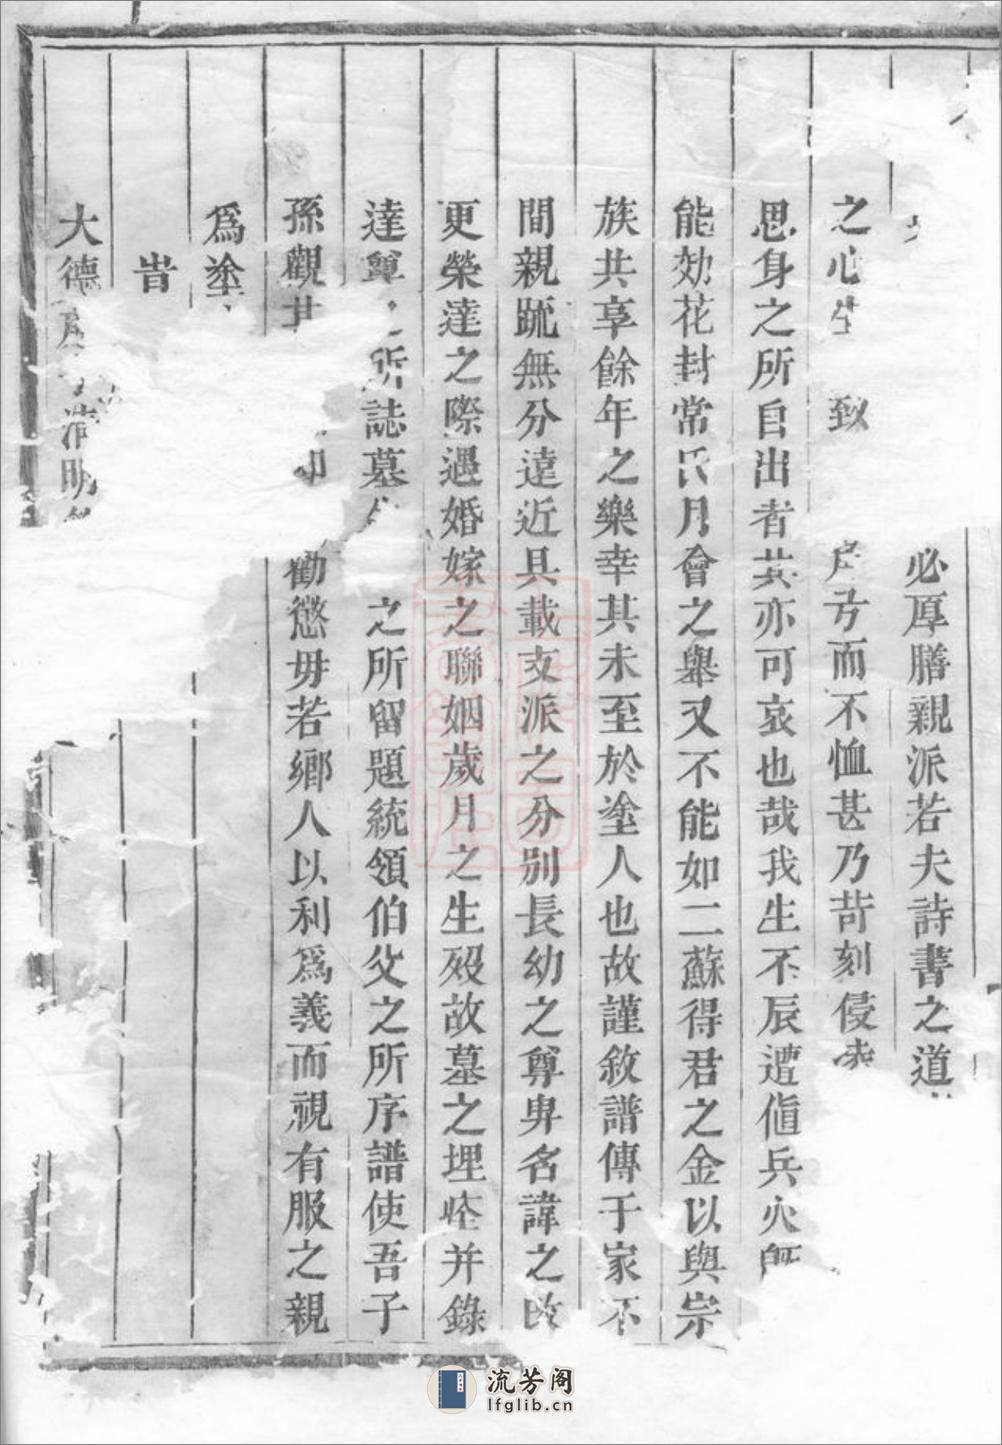 必厚膳親派若夫詩書之道
之心生 致 方而不恤甚乃苛刻侵凌
思身之所自出者其亦可哀也哉我生不辰遭值兵火既
能効花封常氏月會之舉又不能如二蘇得君之金以與宗
族共享餘年之樂幸其未至於塗人也故謹敘譜傳于家不
間親疏無分遠近具載支派之分別長幼之尊卑名諱之改
更榮達之際遇婚嫁之聯姻歲月之生歿故墓之埋塋并錄
達 之所誌墓 之所留題統領伯父之所序譜使吾子
孫觀其 勸懲毋若鄉人以利爲義而視有服之親
爲塗
旹
大德 清明
流芳阁
lfglib.cn